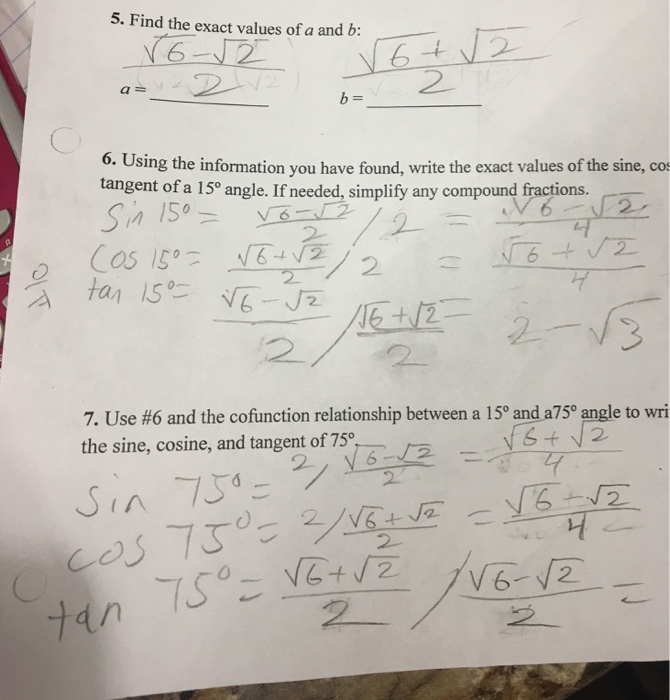 5. Find the exact values of a and b:
a = (√6-√2)/2 b = (√6+√2)/2
6. Using the information you have found, write the exact values of the sine, cos
tangent of a 15° angle. If needed, simplify any compound fractions.
Sin 15° = (√6-√2)/2 / 2 = (√6-√2)/4
Cos 15° = (√6+√2)/2 / 2 = (√6+√2)/4
O/A tan 15° = (√6-√2)/2 / (√6+√2)/2 = 2-√3
7. Use #6 and the cofunction relationship between a 15° and a75° angle to wri
the sine, cosine, and tangent of 75°.
Sin 75° = 2/ (√6-√2)/2 = (√6+√2)/4
cos 75° = 2/ (√6+√2)/2 = (√6-√2)/4
tan 75° = (√6+√2)/2 / (√6-√2)/2 =